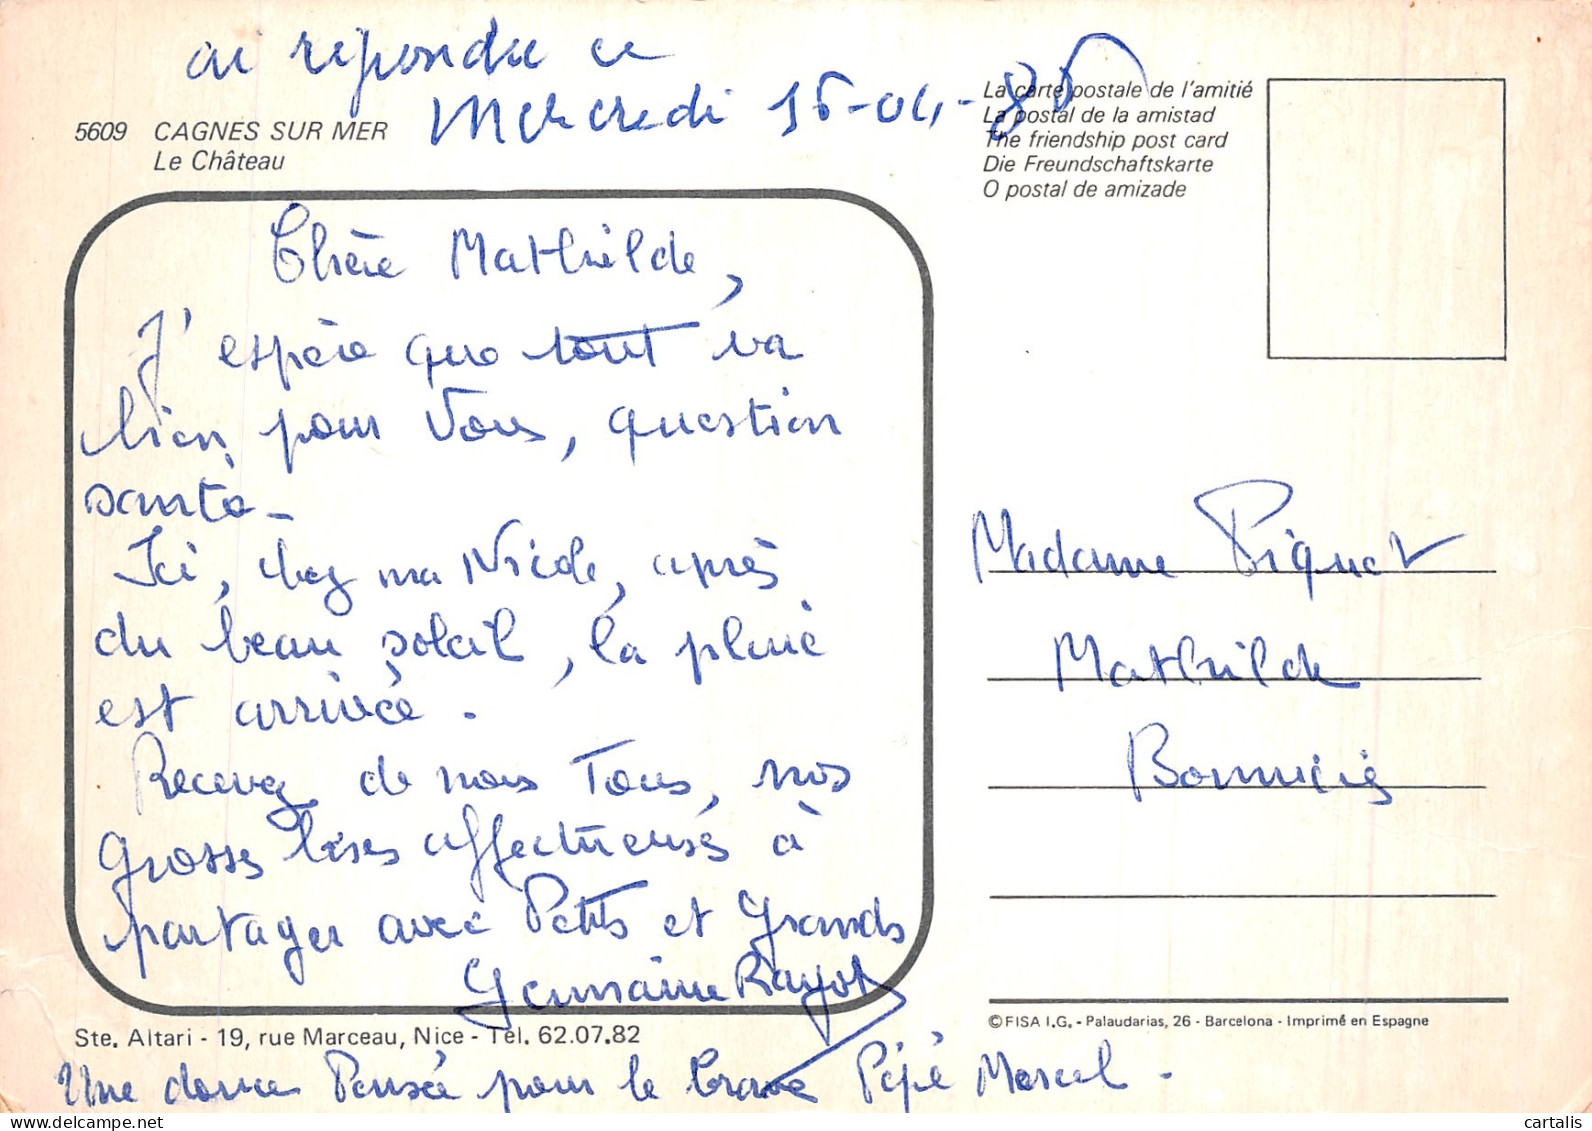 ai répondu ce
Mercredi 16-04-86
5609 CAGNES SUR MER
Le Château
La carte postale de l'amitié
La postal de la amistad
The friendship post card
Die Freundschaftskarte
O postal de amizade
Chère Mathilde,
J'espère que tout va
bien pour Vous, question
santé -
Ici, chez ma Nicole, après
du beau soleil, la pluie
est arrivée.
Recevez de nous Tous, nos
grosses bises affectueuses à
partager avec Petits et Grands
Germaine Rayot
Madame Piquet
Mathilde
Ste. Altari - 19, rue Marceau, Nice - Tél. 62.07.82
© FISA I.G. - Palaudarias, 26 - Barcelona - Imprimé en Espagne
Une douce Pensée pour le brave Pépé Marcel.
cartalis